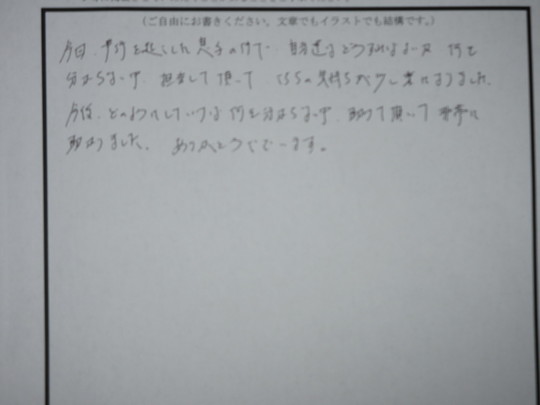 (ご自由にお書きください。文章でもイラストでも結構です。)
今回、事件を起こした息子の件で、自分達はどうすればよいか 何も
分からないず、担当して頂いて こちらの気持ちが少し楽になりました。
今後、どのようにしていけば 何も分からないず、助けて頂いて 非常に
助かりました。 ありがとうございます。